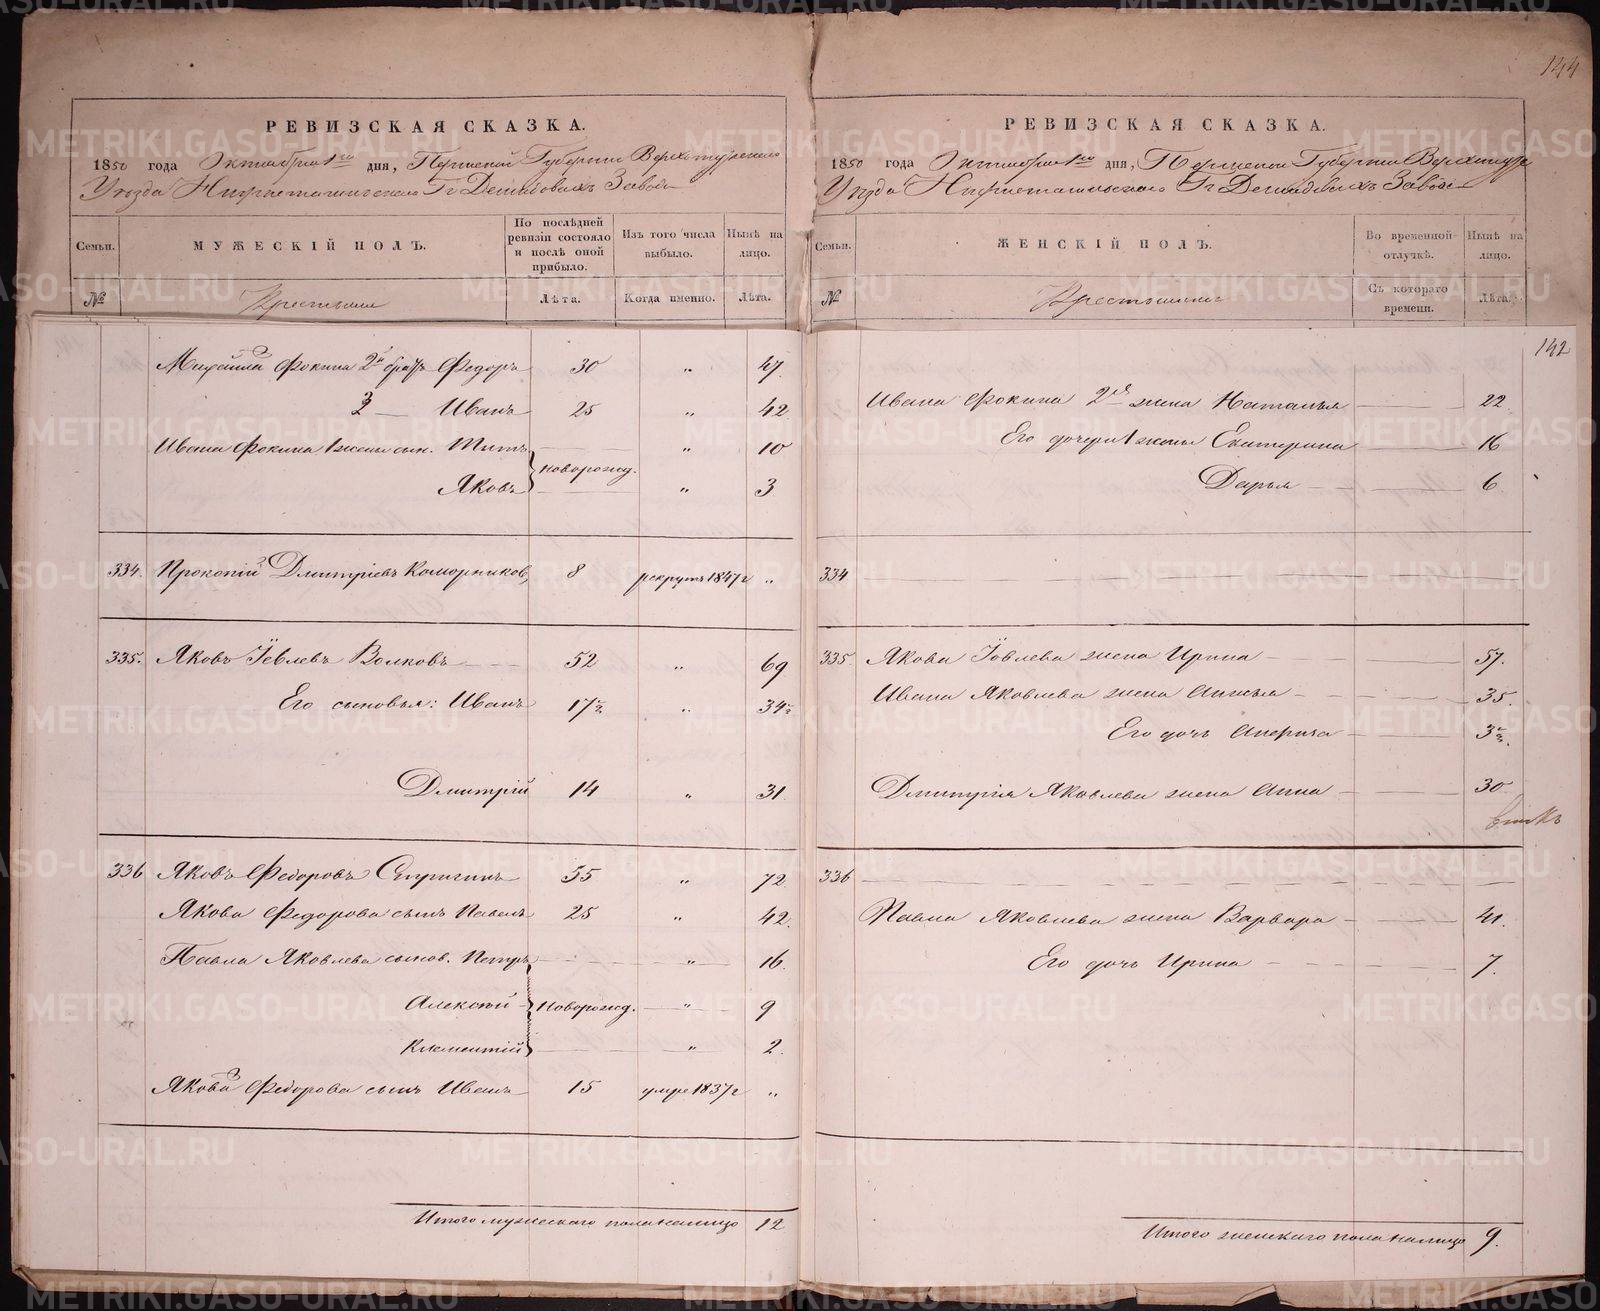 144
РЕВИЗСКАЯ СКАЗКА.
1850 года Октября 1го дня, Пермской Губернии Верхотурского
Уезда Нижнетагильского Гг Демидовыхъ Завода
Семьи. МУЖЕСКІЙ ПОЛЪ. По послѣдней ревизіи состояло и послѣ оной прибыло. Изъ того числа выбыло. Нынѣ на лицо.
№ Крестьяне Лѣта. Когда именно. Лѣта.
Михаила Фокина 2й братъ Федоръ 30 " 47
3 — Иванъ 25 " 42
Ивана Фокина 1 жены сын. Титъ " 10
новорожд.
Яковъ " 3
334. Прокопій Дмитріевъ Коморников, 8 рекрутъ 1847г "
335. Яковъ Іевлевъ Волковъ 52 " 69
Его сыновья: Иванъ 17½ " 34½
Дмитрій 14 " 31.
336 Яковъ Федоровъ Спиригинъ 55 " 72.
Якова Федорова сынъ Павелъ 25 " 42.
Павла Яковлева сынов. Петръ " 16.
Алексѣй новорожд. " 9
Климентій " 2.
Якова Федорова сынъ Иванъ 15 умре 1837г "
Итого мужескаго пола налицо 12
РЕВИЗСКАЯ СКАЗКА.
1850 года Октября 1го дня, Пермской Губернии Верхотурск
Уезда Нижнетагильского Гг Демидовыхъ Завода
Семьи. ЖЕНСКІЙ ПОЛЪ. Во временной отлучкѣ. Нынѣ на лицо.
№ Крестьянки Съ котораго времени. Лѣта.
142
Ивана Фокина 2я жена Наталья 22
Его дочери 1 жены Екатерина 16
Дарья 6
334
335 Якова Іовлева жена Ирина 57.
Ивана Яковлева жена Анисья 35.
Его дочь 3½.
Дмитрія Яковлева жена Анна 30
336
Павла Яковлева жена Варвара 41.
Его дочь Ирина 7.
Итого женскаго пола налицо 9.
METRIKI.GASO-URAL.RU